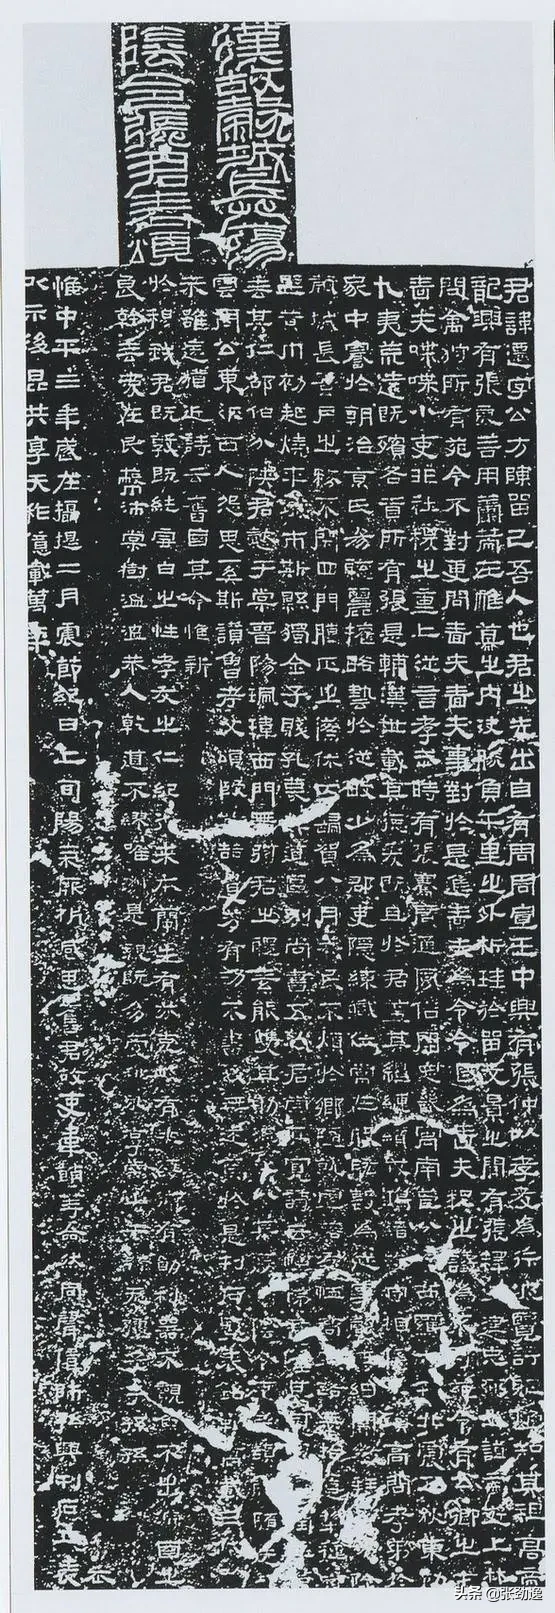 漢故穀城長蕩
陰令張君表頌
君諱遷字公方陳留己吾人也君之先出自有周周宣王中興有張仲以孝友為行披覽詩雅煥知其祖高帝
龍興有張良善用籌策在帷幕之內決勝負千里之外析珪於留文景之間有張釋之建忠弼之謨帝遊上林
問禽狩所有苑令不對更問嗇夫嗇夫事對於是進嗇夫為令令退為嗇夫釋之議為不可苑令有公卿之才
嗇夫喋喋小吏非社稷之重上從言孝武時有張騫廣通風俗開定畿寓南苞八蠻西羈六戎北震五狄東勤
九夷荒遠既殯各貢所有張是輔漢世載其德爰既且於君蓋其繵縺纘戎鴻緒牧守相係不殞高問孝弟於
家中謇於朝治京氏易聰麗權略藝於從畋少為郡吏隱練職位常在股肱數為從事聲無細聞徵拜郎中除
穀城長蠶月之務不閉四門臘正之祭休囚歸賀八月筭民不煩於鄉隨就虛落存恤高年路無拾遺犁種宿
野黃巾初起燒平城市斯縣獨全子賤孔蔑其道區別尚書五教君崇其寬詩云愷悌君隆其恩東里潤色君
垂其仁邵伯分陝君懿于棠晉陽珮瑋西門帶弦君之體素能雙其勛流化八基遷蕩陰令吏民頡頏隨送如
雲周公東征西人怨思奚斯讚魯考父頌殷前喆遺芳有功不書後無述焉於是刊石豎表銘勒萬載三代以
來雖遠猶近詩云舊國其命惟新
於穆我君既敦既純雪白之性孝友之仁紀行來本蘭生有芬克岐有兆綏御有勛利器不覿魚不出淵國之
良幹垂愛在民蔽沛棠樹溫溫恭人乾道不繆唯淑是親既多受祉永享南山干祿無疆子子孫孫
惟中平三年歲在攝提二月震節紀日上旬陽氣厥析感思舊君故吏韋萌等僉然同聲賃師孫興刊石立表
以示後昆共享天祚億載萬年
头条 @张劲逸